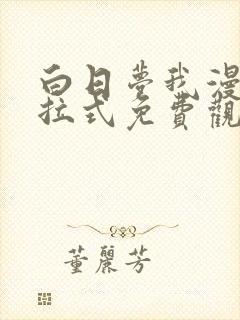 白日夢我漫
拉式免費觀
董麗芳